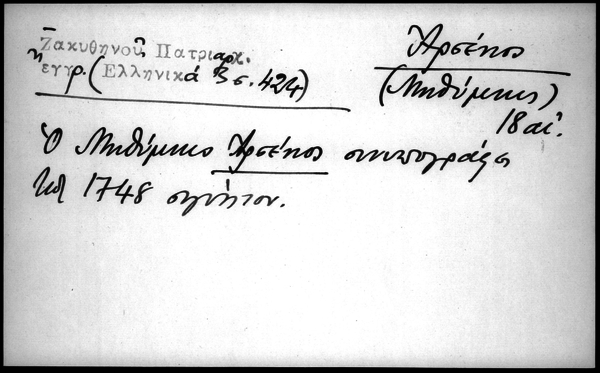 Ζακυθηνοῦ, Πατριαρχ.
ἔγγρ. (Ἑλληνικά 3 σ. 424)
Ἀρσένιος
(Μηθύμνης)
18 αἰ.
Ὁ Μηθύμνης Ἀρσένιος συνυπογράφει
τῷ 1748 σιγίλλιον.